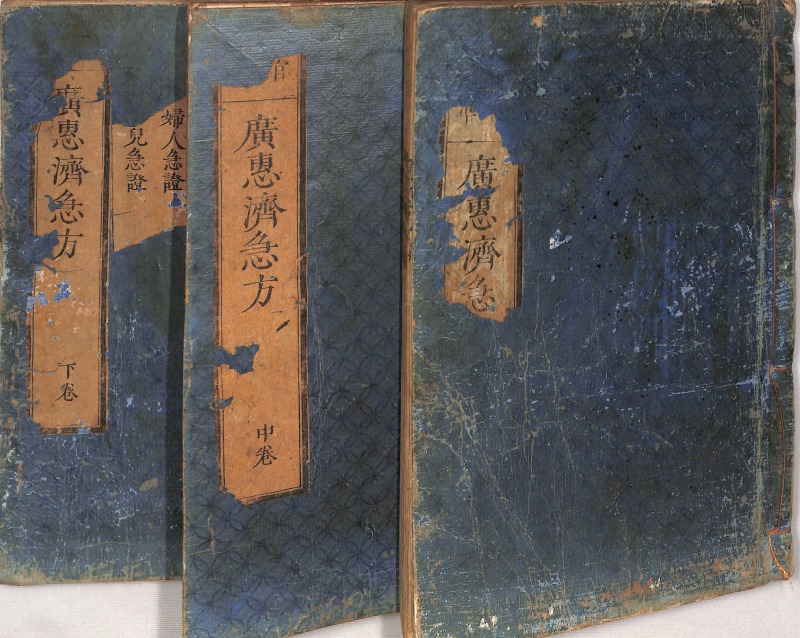 廣惠濟急
官
廣惠濟急方
中卷
婦人急證
兒急證
廣惠濟急方
下卷